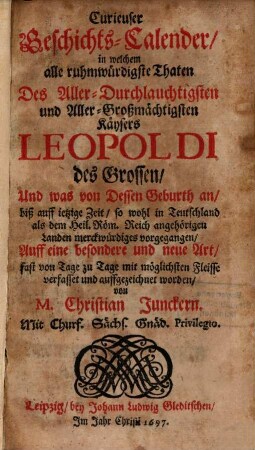 Curieuser
Geschichts-Calender/
in welchem
alle ruhmwürdigste Thaten
Des Aller-Durchlauchtigsten
und Aller-Großmächtigsten
Käysers
LEOPOLDI
des Grossen/
Und was von Dessen Geburth an/
biß auff ietzige Zeit/ so wohl in Teutschland
als dem Heil. Röm. Reich angehörigen
Landen merckwürdiges vorgegangen/
Auff eine besondere und neue Art/
fast von Tage zu Tage mit möglichsten Fleisse
verfasset und auffgezeichnet worden/
von
M. Christian Junckern.
Mit Churf. Sächs. Gnäd. Privilegio.
Leipzig/ bey Johann Ludwig Gleditschen/
Im Jahr Christi 1697.